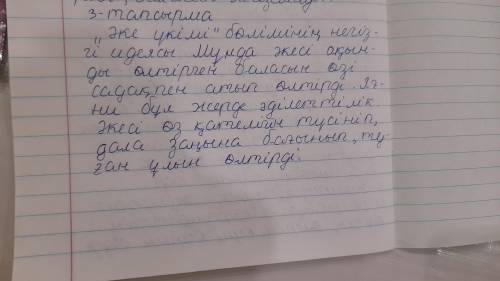 3-тапсырма
„Әке үкімі" бөлімінің негіз-
гі идеясы Мұнда әкесі ақын-
ды өлтірген баласын өзі
садақпен атып өлтірді. Яғ-
ни бұл жерде әділеттілік.
Әкесі өз қателігін түсініп,
дала заңына бағынып, ту
ған ұлын өлтірді.